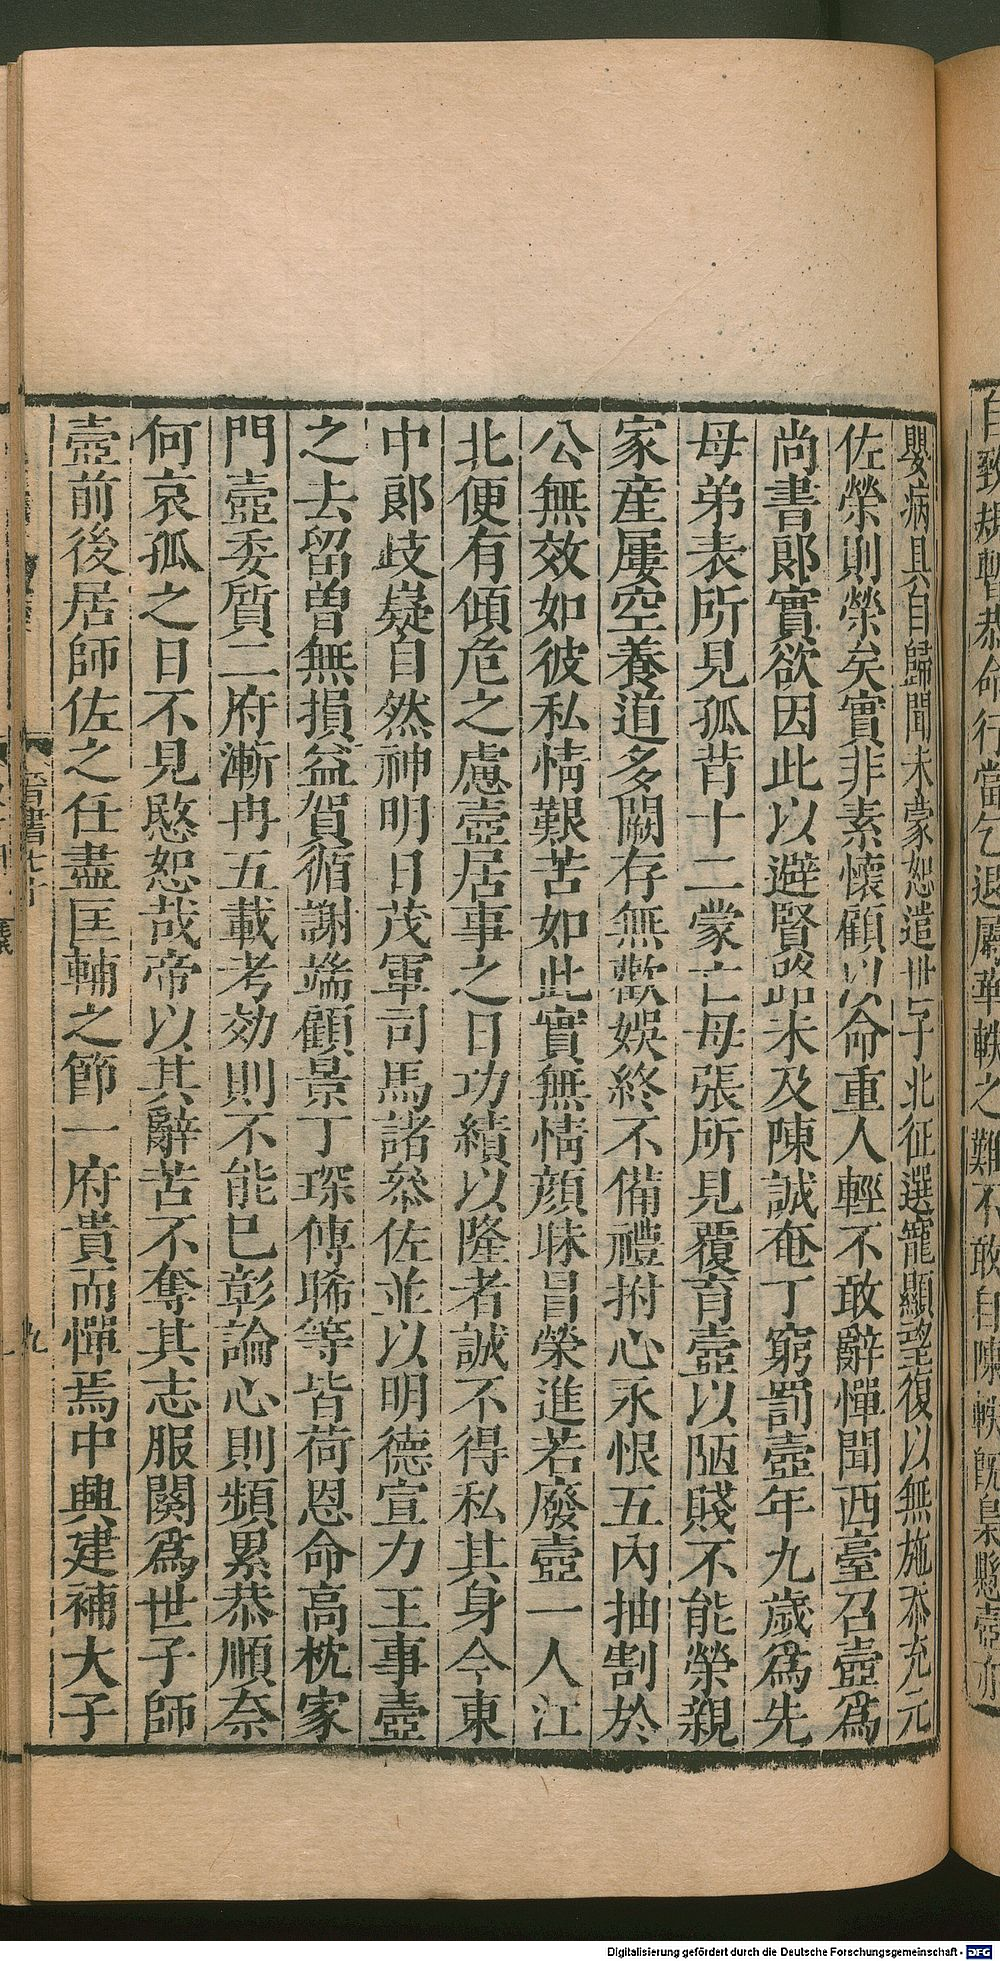 自致規暫恭命行當乞退屬華軼之難不敢自陳軼既梟懸壼亦
嬰病具自歸聞未蒙恕遣世子北征選寵顯望復以無施忝充元
佐榮則榮矣實非素懷顧以命重人輕不敢辭憚聞西臺召壼爲
尚書郞實欲因此以避賢路未及陳誠奄丁窮罰壼年九歲爲先
母弟表所見孤背十二蒙亡母張所見覆育壼以陋賤不能榮親
家産屢空養道多闕存無歡娛終不備禮拊心永恨五內抽割於
公無效如彼私情艱苦如此實無情顔昧冒榮進若廢壼一人江
北便有傾危之慮壼居事之日功績以隆者誠不得私其身今東
中郞歧嶷自然神明日茂軍司馬諸叅佐並以明德宣力王事壼
之去留曽無損益賀循謝端顧景丁琛傅晞等皆荷恩命高枕家
門壼委質二府漸冉五載考効則不能已彰論心則頻累恭順奈
何哀孤之日不見愍恕哉帝以其辭苦不奪其志服闋爲世子師
壼前後居師佐之任盡匡輔之節一府貴而憚焉中興建補大子
晉書
九
Digitalisierung gefördert durch die Deutsche Forschungsgemeinschaft - DFG